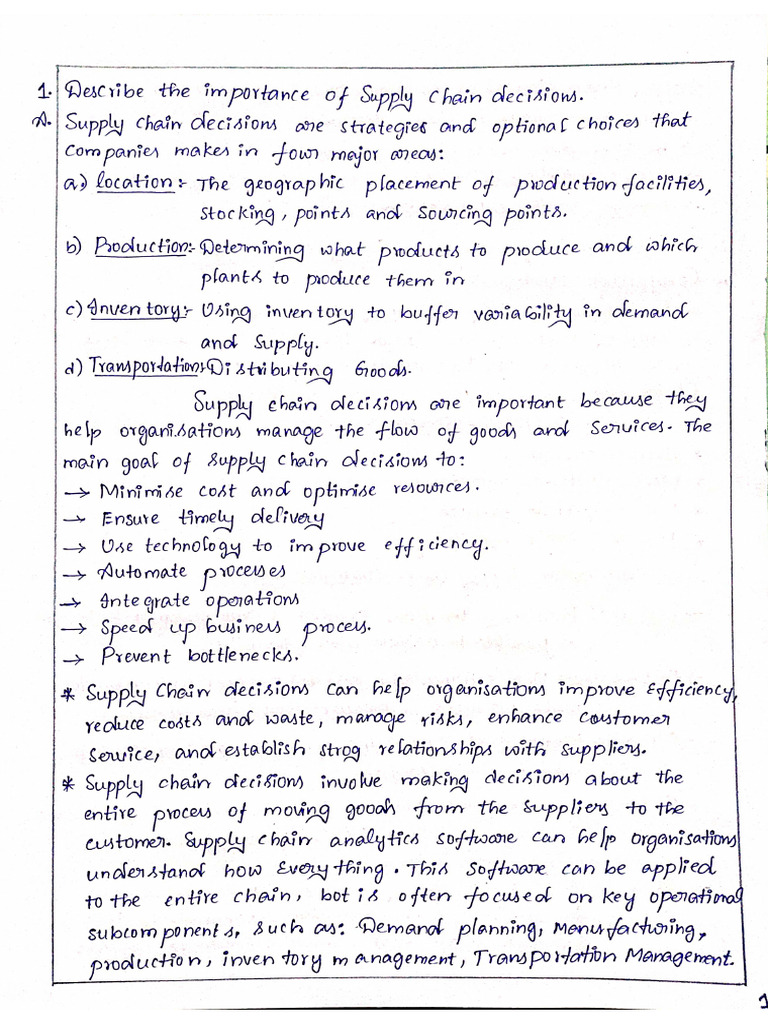 1. Describe the importance of Supply Chain decisions.
A. Supply chain decisions are strategies and optional choices that
companies makes in four major areas:
a) location:- The geographic placement of production facilities,
stocking, points and sourcing points.
b) Production:- Determining what products to produce and which
plants to produce them in
c) Inventory:- Using inventory to buffer variability in demand
and supply.
d) Transportation:- Distributing Goods.
Supply chain decisions are important because they
help organisations manage the flow of goods and services. The
main goal of supply chain decisions to:
→ Minimise cost and optimise resources.
→ Ensure timely delivery
→ Use technology to improve efficiency.
→ Automate processes
→ Integrate operations
→ Speed up business process.
→ Prevent bottlenecks.
* Supply Chain decisions can help organisations improve efficiency,
reduce costs and waste, manage risks, enhance customer
service, and establish strog relationships with suppliers.
* Supply chain decisions involve making decisions about the
entire process of moving goods from the suppliers to the
customer. Supply chain analytics software can help organisations
understand how everything. This software can be applied
to the entire chain, bot is often focused on key operational
subcomponents, such as: Demand planning, Manufacturing,
production, inventory management, Transportation Management.
1